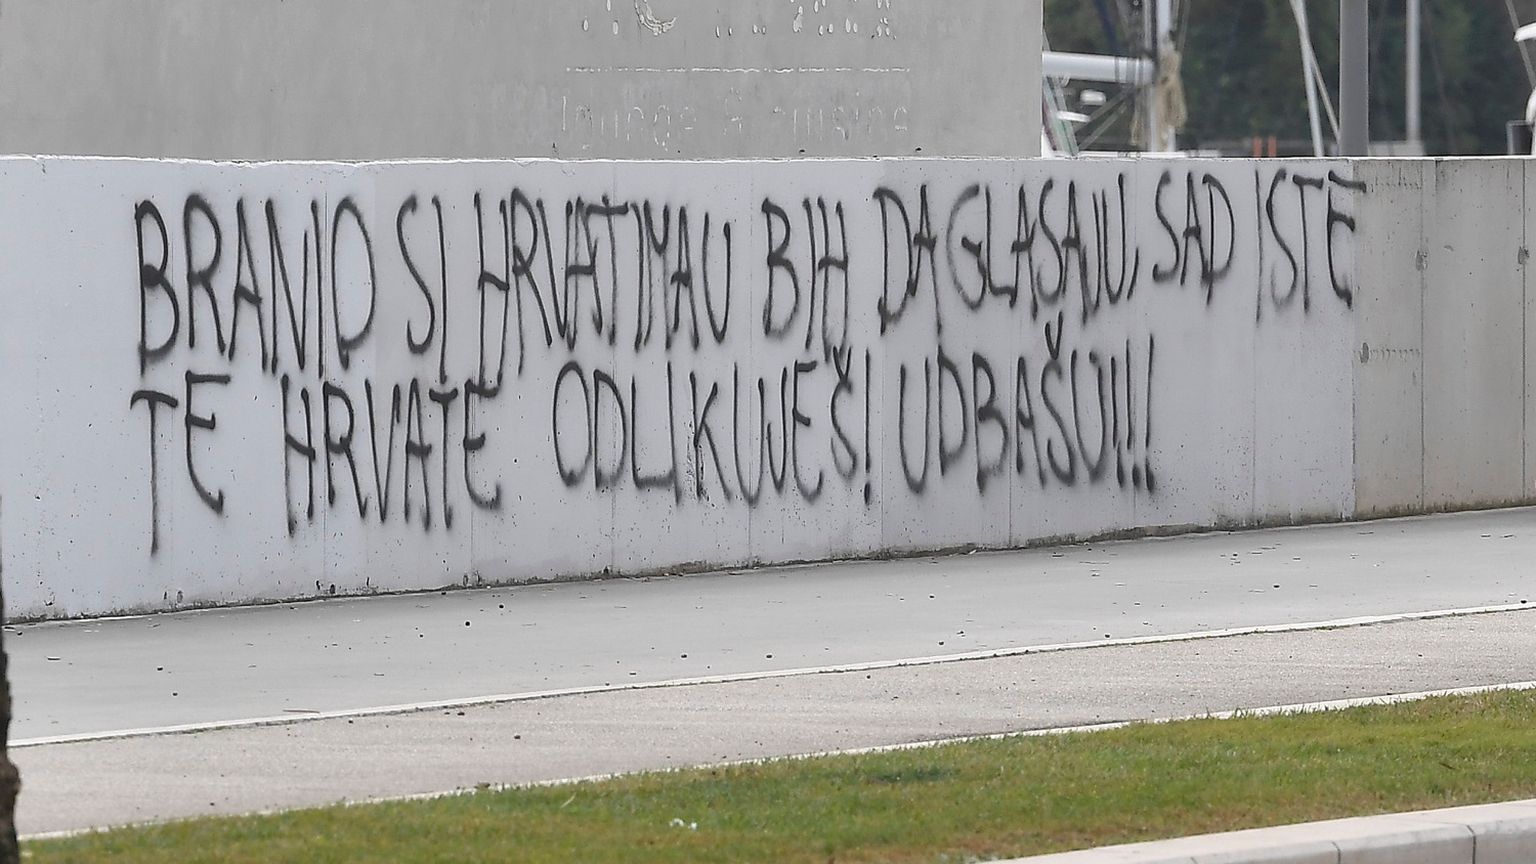 lounge & cuisine
BRANIO SI HRVATIMA U BIH DA GLASAJU, SAD ISTE
TE HRVATE ODLIKUJEŠ! UDBAŠU!!!